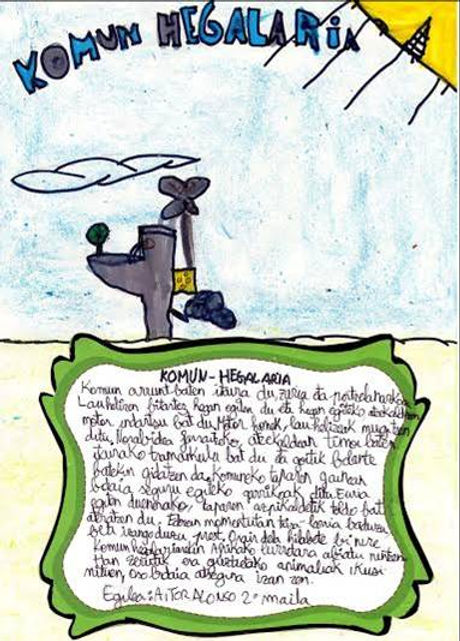 KOMUN HEGALARIA
KOMUN-HEGALARIA
Komun arrunt baten itxura du, zuria da eta portzelanazkoa.
Lau helizen bitartez hegan egiten du eta hegan egiteko atzekaldean
motor indartsu bat du. Motor honek, lau helizeak mugitzen
ditu. Norabidea jarraitzeko, atzekaldean timoi baten
itxurako tramankulu bat du eta goitik belante
batekin gidatzen da. Komuneko taparen gainean
bidaia seguru egiteko gerrikoak ditu. Euria
egiten duenerako, taparen azpikaldetik toldo bat
ateratzen du. Edozein momentutan kaka-larria baduzu
beti izango duzu prest. Orain dela hilabete bi nire
komun hegalariarekin Afrikako lurretara abiatu nintzen.
Han zelutik era guztietako animaliak ikusi
nituen, oso bidaia atsegina izan zen.
Egilea: AITOR ALONSO 2º maila